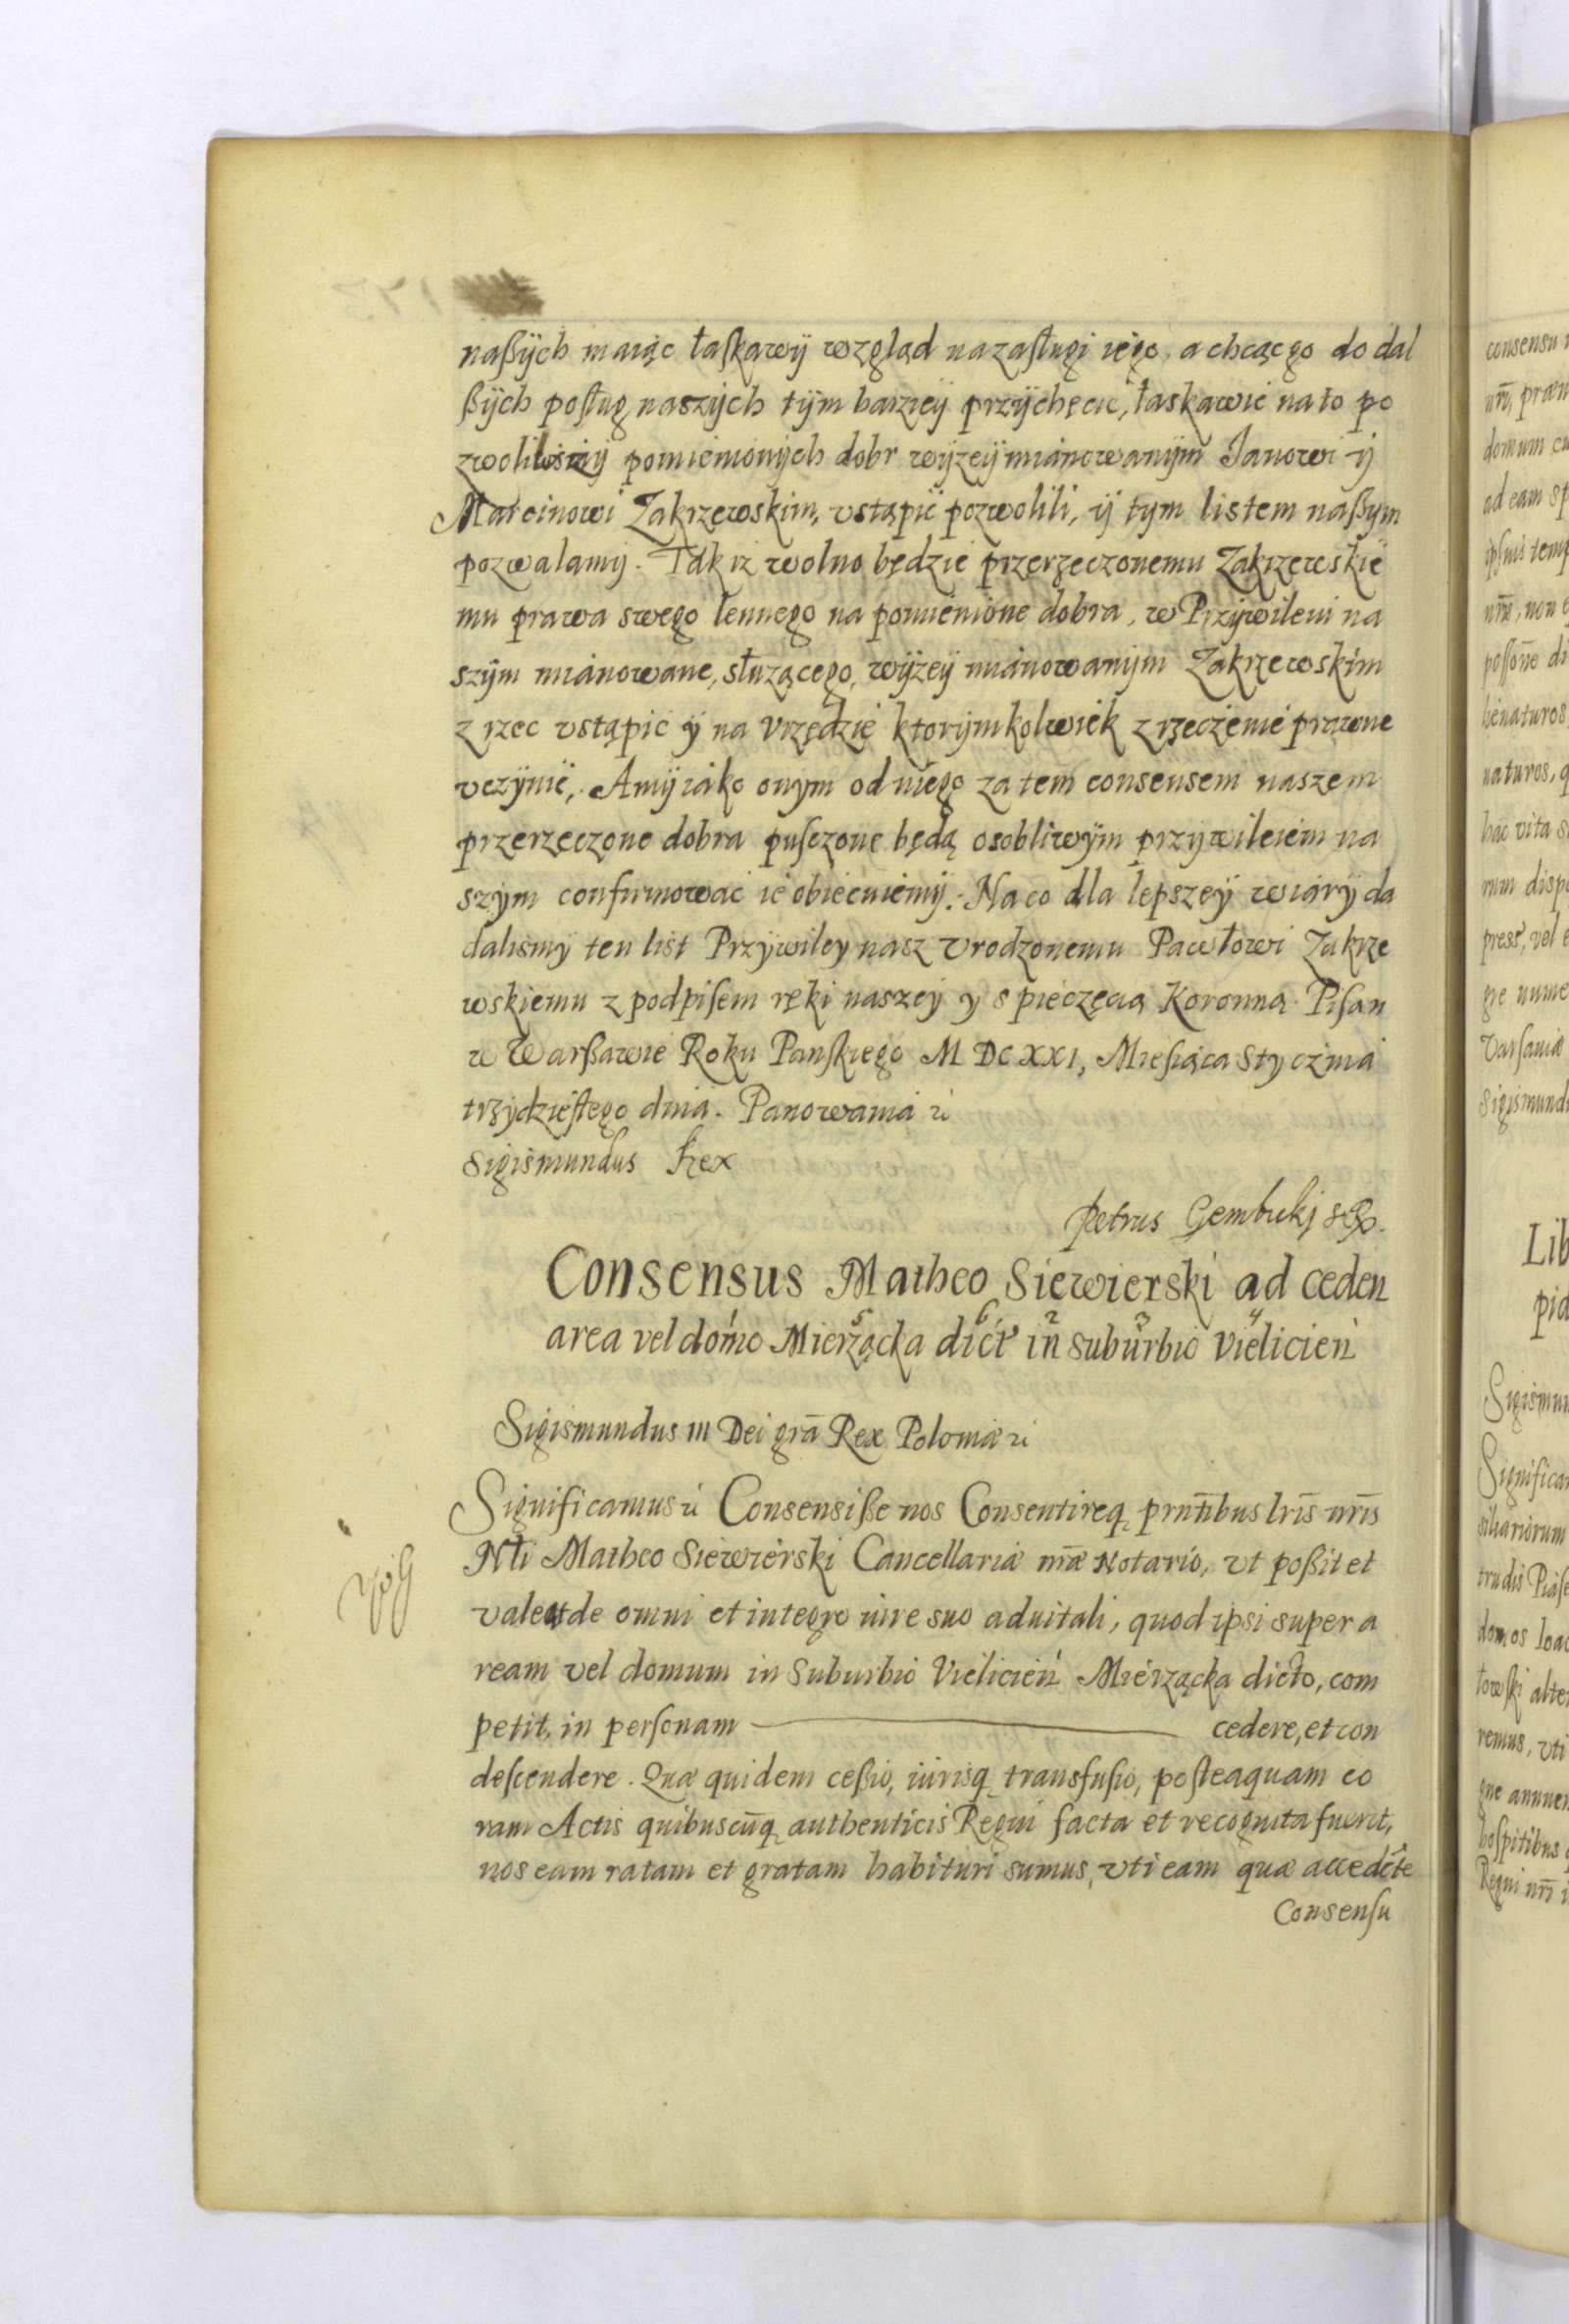 naßÿch maiąc łaſkawÿ wzgląd na zaſługi iego, a chcąc go do dal
ßÿch poſług naszÿch tÿm barzieÿ przÿchęcić, łaskawie na to po
zwoliliśmÿ pomienionÿch dobr wÿżeÿ mianowanÿm Janowi ÿ
Marcinowi Zakrzewskim, vstąpić pozwolili, ÿ tym listem naßym
pozwalamÿ. Tak iz wolno będzie przerzeczonemu Zakrzewskie
mu prawa swego lennego na pomienione dobra, w Przÿwileiu na
szÿm mianowane, służącego, wÿżeÿ mianowanÿm Zakrzewskim
zrzec vstąpić ÿ na Vrzędzie ktorÿmkolwiek zrzeczenie prawne
vczÿnić, A mÿ iako onÿm od niego za tem consensem naszem
przerzeczone dobra puſczone będą osobliwÿm przÿwileiem na
szÿm confirmować ie obiecuiemÿ. Na co dla lepszeÿ wiarÿ da
dalismÿ ten list Przÿwiley nasz Vrodzonemu Pawłowi Zakrze
wskiemu z podpiſem ręki naszeÿ y s pieczęcią Koronną. Piſan
w Warßawie Roku Panſkiego M DC XXI, Mieſiąca Stycznia
trzÿdzieſtego dnia. Panowania etc
Sigismundus Rex
Petrus Gembicki
Consensus Matheo Siewierski ad ceden
area vel domo Mierzącka dict in Suburbio Vielicień
1 5 6 2 3 4
Sigismundus III Dei grā Rex Poloniæ etc
Significamus etc Consensiße nos Consentireq prntibus lrīs nrīs
Nli Matheo Siewierski Cancellariæ nræ Notario, vt poßit et
valeat de omni et integro iure suo aduitali, quod ipsi super a
ream vel domum in Suburbio Vielicień Mierzącka dicto, com
petit, in perſonam ——— cedere, et con
deſcendere. Quæ quidem ceßio, iurisq transfuſio, poſteaquam co
ram Actis quibuscūq authenticis Regni facta et recognita fuerit,
nos eam ratam et gratam habituri sumus, vti eam quæ accedēte
Consenſu